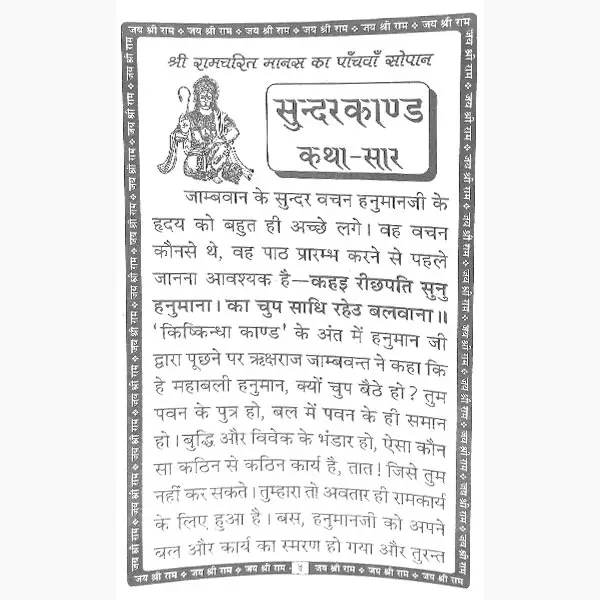 जय श्री राम ❖ जय श्री राम ❖ जय श्री राम ❖ जय श्री राम ❖ जय श्री राम
श्री रामचरित मानस का पाँचवाँ सोपान
सुन्दरकाण्ड
कथा-सार
जाम्बवान के सुन्दर वचन हनुमानजी के
हृदय को बहुत ही अच्छे लगे। वह वचन
कौनसे थे, वह पाठ प्रारम्भ करने से पहले
जानना आवश्यक है—कहइ रीछपति सुनु
हनुमाना। का चुप साधि रहेउ बलवाना॥
'किष्किन्धा काण्ड' के अंत में हनुमान जी
द्वारा पूछने पर ऋक्षराज जाम्बवन्त ने कहा कि
हे महाबली हनुमान, क्यों चुप बैठे हो? तुम
पवन के पुत्र हो, बल में पवन के ही समान
हो। बुद्धि और विवेक के भंडार हो, ऐसा कौन
सा कठिन से कठिन कार्य है, तात! जिसे तुम
नहीं कर सकते। तुम्हारा तो अवतार ही रामकार्य
के लिए हुआ है। बस, हनुमानजी को अपने
बल और कार्य का स्मरण हो गया और तुरन्त
जय श्री राम ❖ जय श्री राम ❖ जय श्री राम ❖ जय श्री राम ❖ जय श्री राम